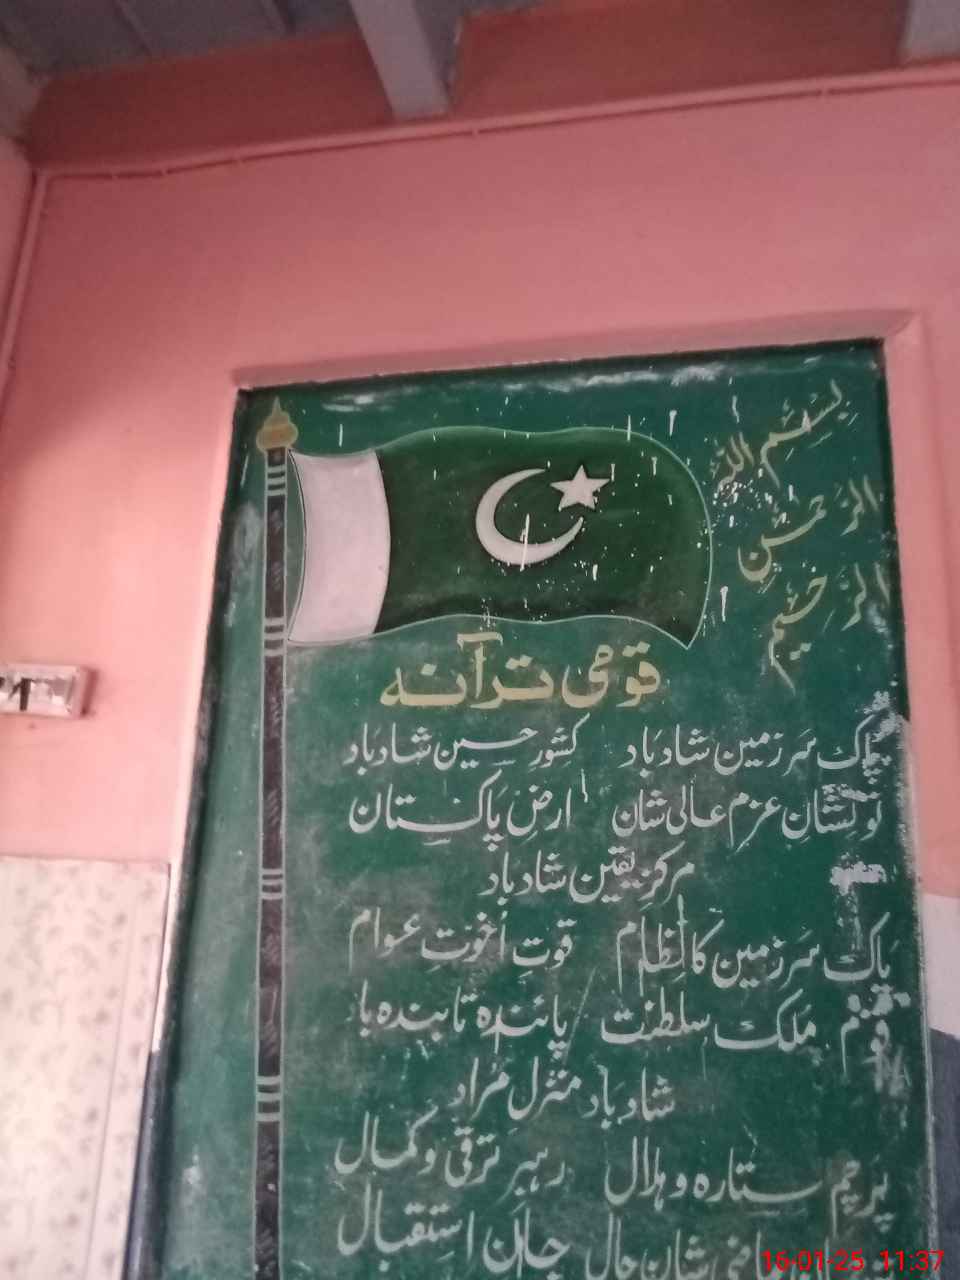 بِسْمِ اللہِ
الرَّحْمٰنِ
الرَّحِیْمِ
قومی ترآنہ
پاک سَرزمین شاد بَاد کشْورِ حسین شاد بَاد
تو نِشانِ عزمِ عالی شان ارضِ پَاکستان
مرکزِ یقین شاد بَاد
پاک سَرزمین کا نِظام قوتِ اُخوتِ عوام
قوم مُلک سلطنت پائندہ تابندہ باد
شاد بَاد منزلِ مُراد
پرچم ستارہ و ہلال رہبرِ ترقی و کمال
ماضی شانِ حال جانِ استقبال
16-01-25 11:37